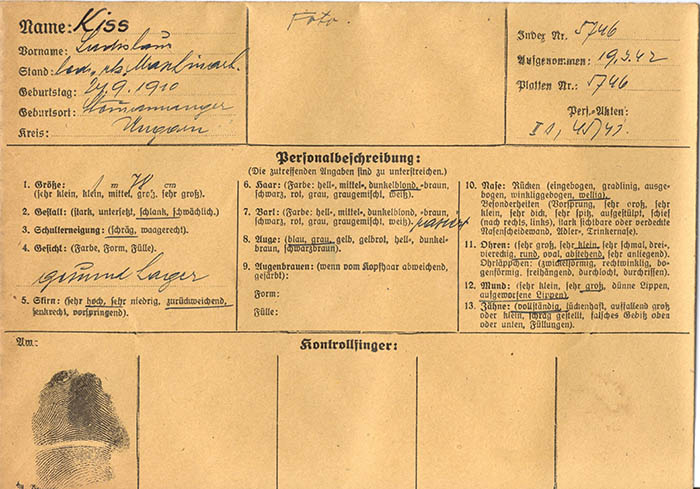 Name: Kiss
Vorname: Ladislaus
Stand: led., rk.
Geburtstag: 24.9.1910
Geburtsort:
Kreis: Ungarn
Foto
Index Nr. 5746
Aufgenommen: 19.3.42
Platten Nr.: 5746
Pers.-Akten:
Personalbeschreibung:
(Die zutreffenden Angaben sind zu unterstreichen.)
1. Größe: 1 m 78 cm
(sehr klein, klein, mittel, groß, sehr groß).
2. Gestalt: (stark, untersetzt, schlank, schwächlich).
3. Schulterneigung: (schräg, waagerecht).
4. Gesicht: (Farbe, Form, Fülle).
5. Stirn: (sehr hoch, sehr niedrig, zurückweichend,
senkrecht, vorspringend).
6. Haar: (Farbe: hell-, mittel-, dunkelblond, -braun,
schwarz, rot, grau, graugemischt, weiß).
7. Bart: (Farbe: hell-, mittel-, dunkelblond, -braun,
schwarz, rot, grau, graugemischt, weiß). rasiert
8. Auge: (blau, grau, gelb, gelbrot, hell-, dunkel-
braun, schwarzbraun).
9. Augenbrauen: (wenn vom Kopfhaar abweichend,
gefärbt):
Form:
Fülle:
10. Nase: Rücken (eingebogen, gradlinig, ausge-
bogen, winkliggebogen, wellig).
Besonderheiten (Vorsprung, sehr groß, sehr
klein, sehr dick, sehr spitz, aufgestülpt, schief
(nach rechts, links), stark sichtbare oder verdeckte
Nasenscheidewand, Adler-, Trinkernase).
11. Ohren: (sehr groß, sehr klein, sehr schmal, drei-,
viereckig, rund, oval, abstehend, sehr anliegend).
Ohrläppchen: (zwickelförmig, rechtwinklig, bo-
genförmig, freihängend, durchlocht, durchrissen).
12. Mund: (sehr klein, sehr groß, dünne Lippen,
aufgeworfene Lippen).
13. Zähne: (vollständig, lückenhaft, auffallend groß
oder klein, schräg gestellt, falsches Gebiß oben
oder unten, Füllungen).
Am:
Kontrollfinger: